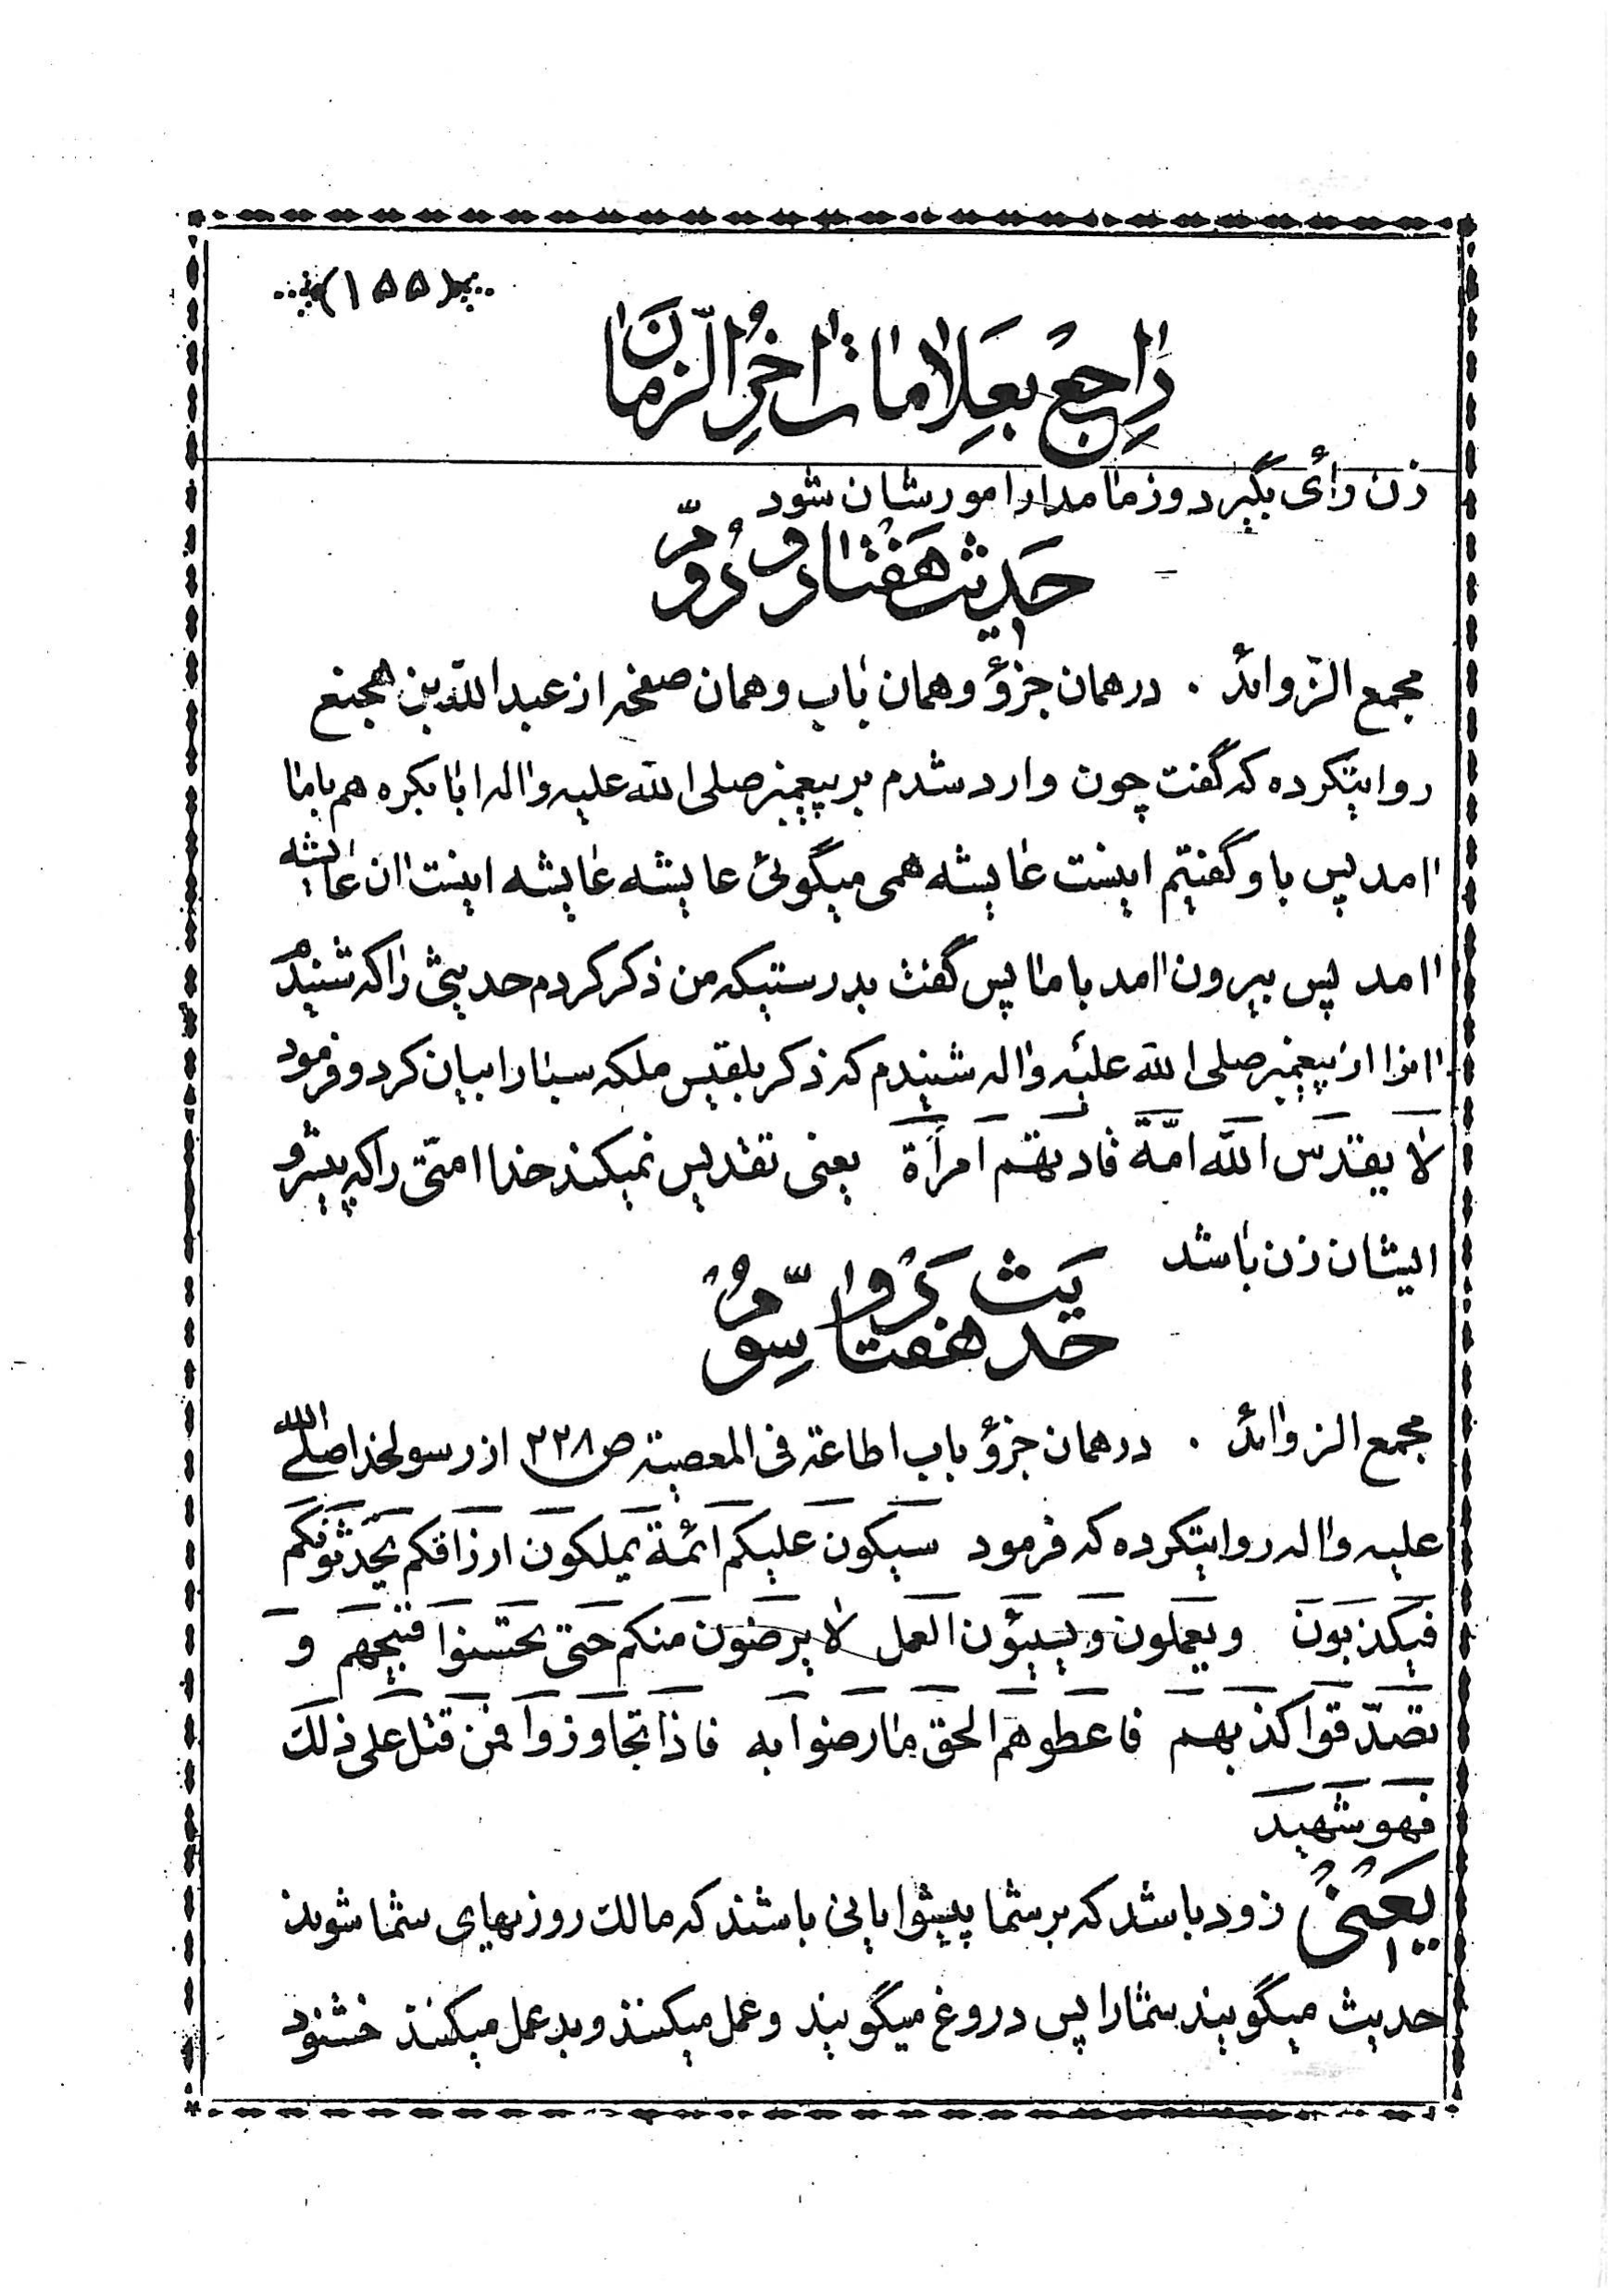 (۱۵۵)
راجع بعلامات اخر الزّمان
زن رأی بگیرد و زمامدار امورشان شود
حدیث هفتاد و دوّم
مجمع الزّوائد . در همان جزؤ و همان باب و همان صفحه از عبد الله بن هجنع
روایتکرده که گفت چون وارد شدم بر پیغمبر صلی الله علیه واله ابا بکره هم با ما
امد پس باو گفتیم اینست عایشه همی میگوئی عایشه عایشه اینست ان عایشه
امد پس بیرون امد با ما پس گفت بدرستیکه من ذکر کردم حدیثی را که شنیدم
انرا از پیغمبر صلی الله علیه واله شنیدم که ذکر بلقیس ملکه سبا را بیان کرد و فرمود
لا یقدس الله امّة قادتهم امرأة یعنی تقدیس نمیکند خدا امتی را که پیشرو
ایشان زن باشد
حدیث هفتاد و سوّم
مجمع الزوائد . در همان جزؤ باب اطاعة فی المعصیة ص ۲۲۸ از رسولخدا صلی الله
علیه واله روایتکرده که فرمود سیکون علیکم ائمة یملکون ارزاقکم یحدثونکم
فیکذبون و یعملون و یسیئون العمل لا یرضون منکم حتی تحسنوا قبیحهم و
تصدّقوا کذبهم فاعطوهم الحق ما رضوا به فاذا تجاوزوا فمن قتل علی ذلک
فهو شهید
یعنی زود باشد که بر شما پیشوایانی باشند که مالک روزیهای شما شوند
حدیث میگویند شما را پس دروغ میگویند و عمل میکنند و بد عمل میکنند خشنود